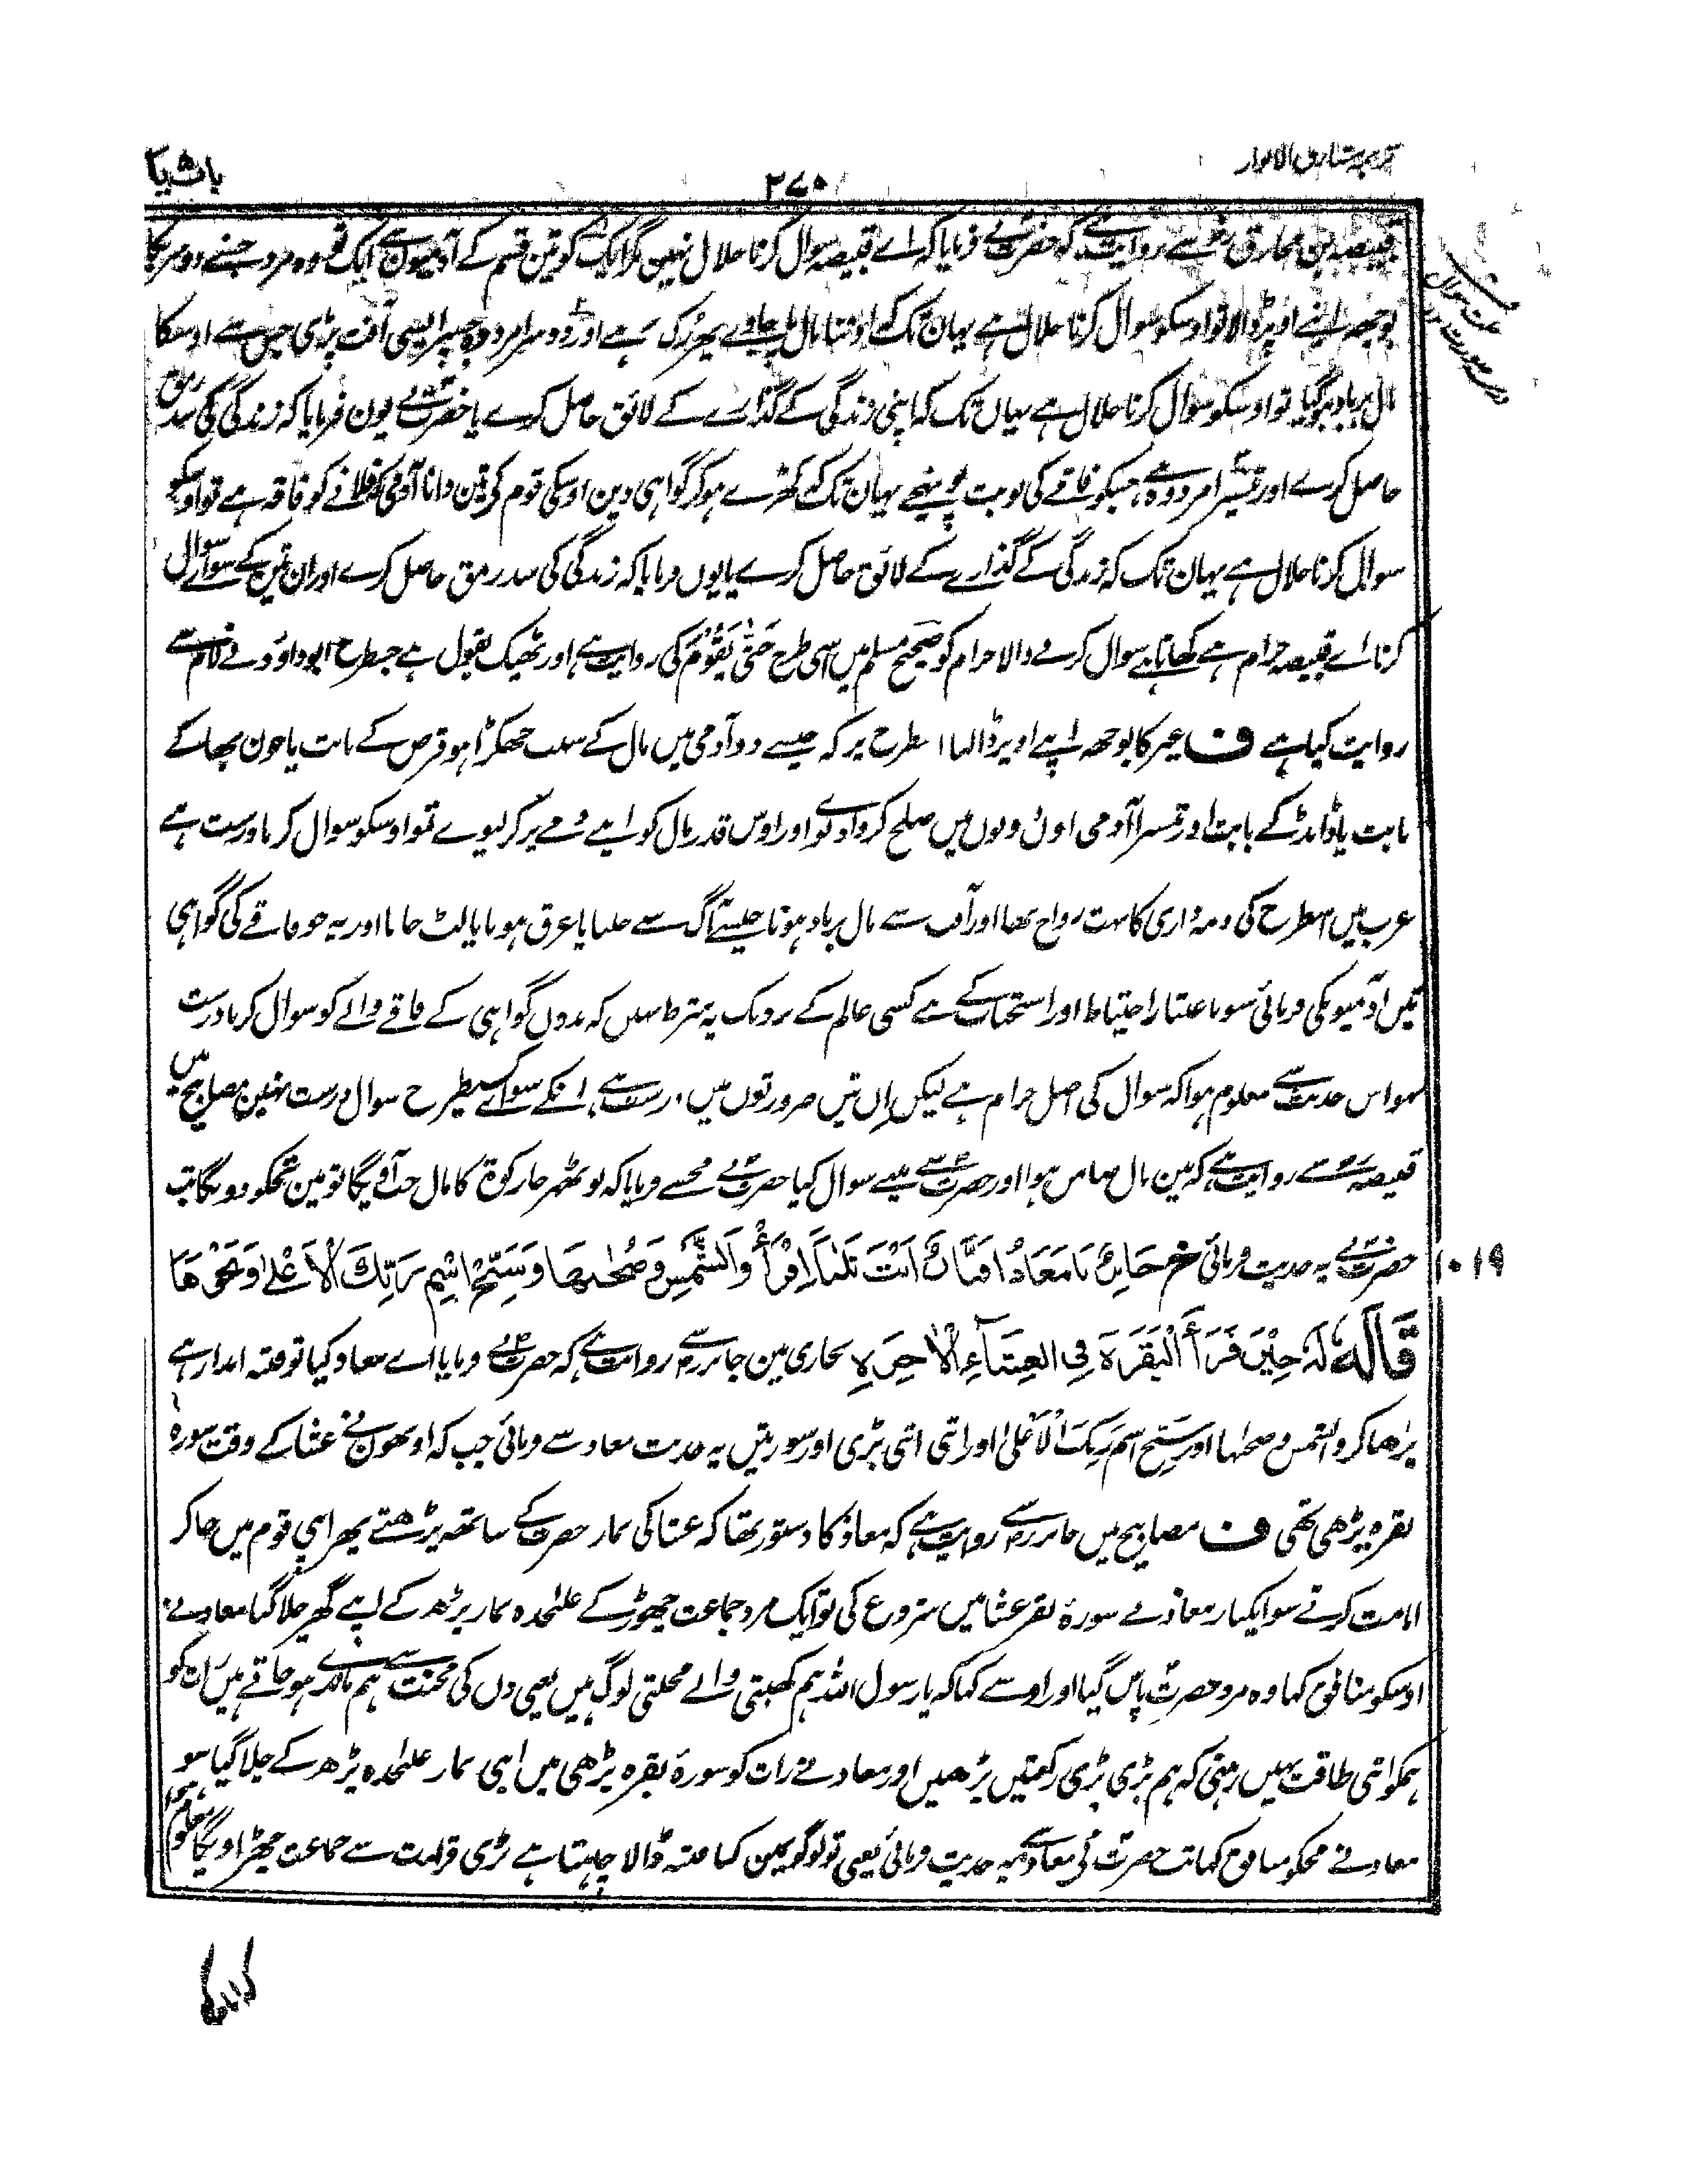 ترجمہ مشارق الانوار
۲۷۰
قبیصہ بن مخارق سے روایت ہے کہ حضرت نے فرمایا کہ اے قبیصہ سوال کرنا حلال نہیں مگر ایک کو تین قسم کے آدمیوں سے ایک تو وہ مرد جسنے دوسریکا
بوجھ اپنے اوپر ڈالا تو اوسکو سوال کرنا حلال ہے یہان تک کہ اوتنا مال مل جاوے پھر رُکی رہے اور دوسرا مرد وہ جسپر ایسی آفت پڑی جس سے اوسکا
مال برباد ہوگیا تو اوسکو سوال کرنا حلال ہے یہاں تک کہ اپنی زندگی کے گذارے کے لائق حاصل کرے یا حضرت نے یون فرمایا کہ زندگی کی سد رمق
حاصل کرے اور تیسرا مرد وہ ہے جسکو فاقے کی نوبت پہنچے یہان تک کہ کھڑے ہوکر گواہی دین اوسکی قوم کی تین دانا آدمی کہ فلانے کو فاقہ ہے تو اوسکو
سوال کرنا حلال ہے یہان تک کہ زندگی کے گذارے کے لائق حاصل کرے یا یوں فرمایا کہ زندگی کی سد رمق حاصل کرے اور ان تین کے سوائے سوال
کرنا اے قبیصہ حرام ہے کھاتا ہے سوال کرنے والا حرام کو صحیح مسلم میں اسی طرح حَتّٰی یَقُوْمَ کی روایت ہے اور ٹھیک یقول ہے جسطرح ابو داؤد نے لام سے
روایت کیا ہے ف غیر کا بوجھ اپنے اوپر ڈالنا اسطرح پر کہ جیسے دو آدمی میں مال کے سبب جھگڑا ہو قرض کے بابت یا خون بھا کے
بابت یا ڈانڈ کے بابت اور تیسرا آدمی اون دونوں میں صلح کروا دے اور اوس قدر مال کو اپنے ذمے پر کر لیوے تو اوسکو سوال کرنا درست ہے
عرب میں اسطرح کی ذمہ داری کا بہت رواج تھا اور آفت سے مال برباد ہونا جیسے آگ سے جلنا یا غرق ہونا یا لٹ جانا اور یہ جو فاقے کی گواہی
تین آدمیونکی فرمائی سو باعتبار احتیاط اور استحباب کے ہے کسی عالم کے نزدیک یہ شرط نہیں کہ بدوں گواہی کے فاقے والے کو سوال کرنا درست
نہو اس حدیث سے معلوم ہوا کہ سوال کی اصل حرام ہے لیکن ان تین ضرورتوں میں درست ہے انکے سوا کسیطرح سوال درست نہین مصابیح میں
قبیصہ سے روایت ہے کہ مین مال ضامن ہوا اور حضرت سے مینے سوال کیا حضرت نے مجھسے فرمایا کہ تو ٹھہر جا زکوٰۃ کا مال جب آویگا تو مین تجکو دونگا تب
حضرت نے یہ حدیث فرمائی خ جَابِرٌ یَا مَعَاذُ اَفَتَّانٌ اَنْتَ ثَلٰثًا اِقْرَأْ وَالشَّمْسِ وَضُحٰىهَا وَسَبِّحِ اسْمَ رَبِّكَ الْاَعْلٰی وَنَحْوَهَا
۱۰۱۹
قَالَهٗ لَهٗ حِيْنَ قَرَأَ الْبَقَرَةَ فِي الْعِشَآءِ الْاٰخِرَةِ بخاری مین جابر سے روایت ہے کہ حضرت نے فرمایا اے معاذ کیا تو فتنہ انداز ہے
پڑھا کر والشمس وضحٰہا اور سَبِّحِ اسْمَ رَبِّكَ الْاَعْلٰی اور اتنی اتنی بڑی اور سورتیں یہ حدیث معاذ سے فرمائی جب کہ اونھون نے عشا کے وقت سورہ
بقرہ پڑھی تھی ف مصابیح میں جابر سے روایت ہے کہ معاذ کا دستور تھا کہ عشا کی نماز حضرت کے ساتھ پڑھتے پھر اپنی قوم میں جا کر
امامت کرتے سو ایکبار معاذ نے سورۂ بقر عشا میں شروع کی تو ایک مرد جماعت چھوڑ کے علٰحدہ نماز پڑھ کے اپنے گھر چلا گیا معاذ نے
اوسکو منافق کہا وہ مرد حضرت پاس گیا اور اوسنے کہا کہ یا رسول اللہ ہم کھیتی والے محنتی لوگ ہیں یعنی دن کی محنت سے ہم ماندے ہو جاتے ہیں ران کو
ہمکو اتنی طاقت نہیں رہتی کہ ہم بڑی بڑی رکعتیں پڑھیں اور معاذ نے رات کو سورۂ بقرہ پڑھی میں اپنی نماز علٰحدہ پڑھ کے چلا گیا سو
معاذ نے مجکو منافق کہا تب حضرت نے معاذ سے یہ حدیث فرمائی یعنی تو لوگونمین کیا فتنہ ڈالا چاہتا ہے بڑی قراءت سے جماعت چھڑاویگا معلوم ہوا